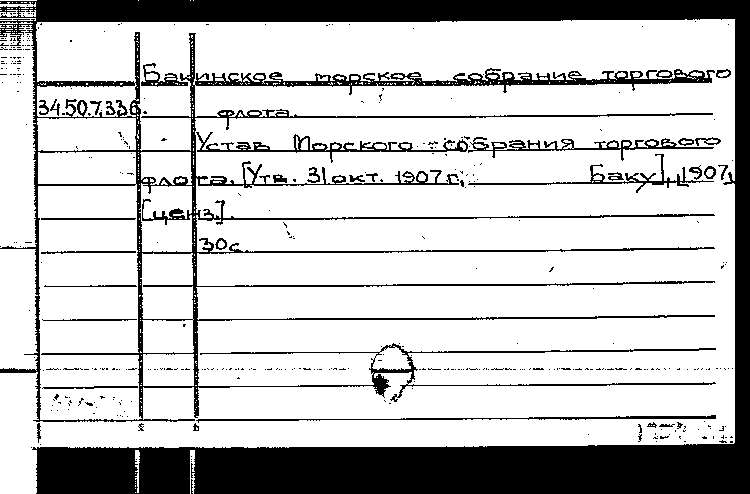 Бакинское морское собрание торгового
34.50.7.336. флота.
Устав Морского собрания торгового
флота. [Утв. 31 окт. 1907 г. Баку], 1907,
[ценз.].
30с.